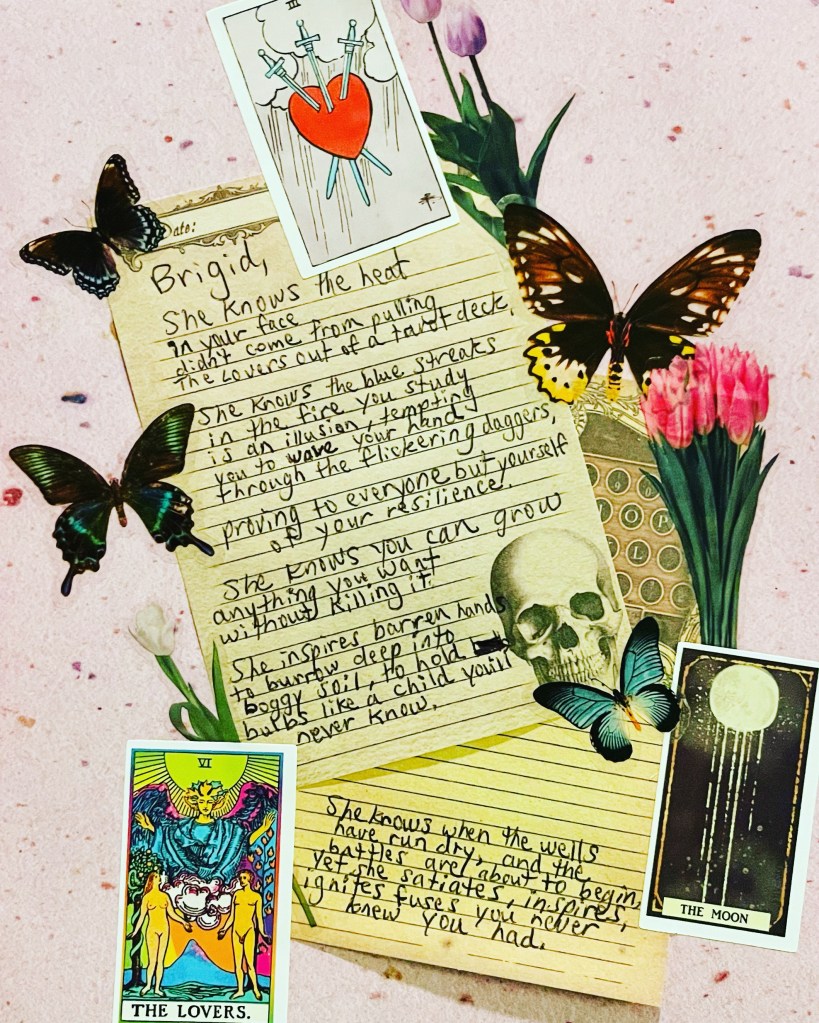 III
Date:
Brigid,
She knows the heat
in your face
didn't come from pulling
the lovers out of a tarot deck.
She knows the blue streaks
in the fire you study
is an illusion, tempting
you to wave your hand
through the flickering daggers,
proving to everyone but yourself
of your resilience.
She knows you can grow
anything you want
without killing it
She inspires barren hands
to burrow deep into
boggy soil, to hold
bulbs like a child you'll
never know.
She knows when the wells
have run dry, and the
battles are about to begin,
yet she satiates, inspires,
ignites fuses you never
knew you had.
O P
L
VI
THE LOVERS.
THE MOON